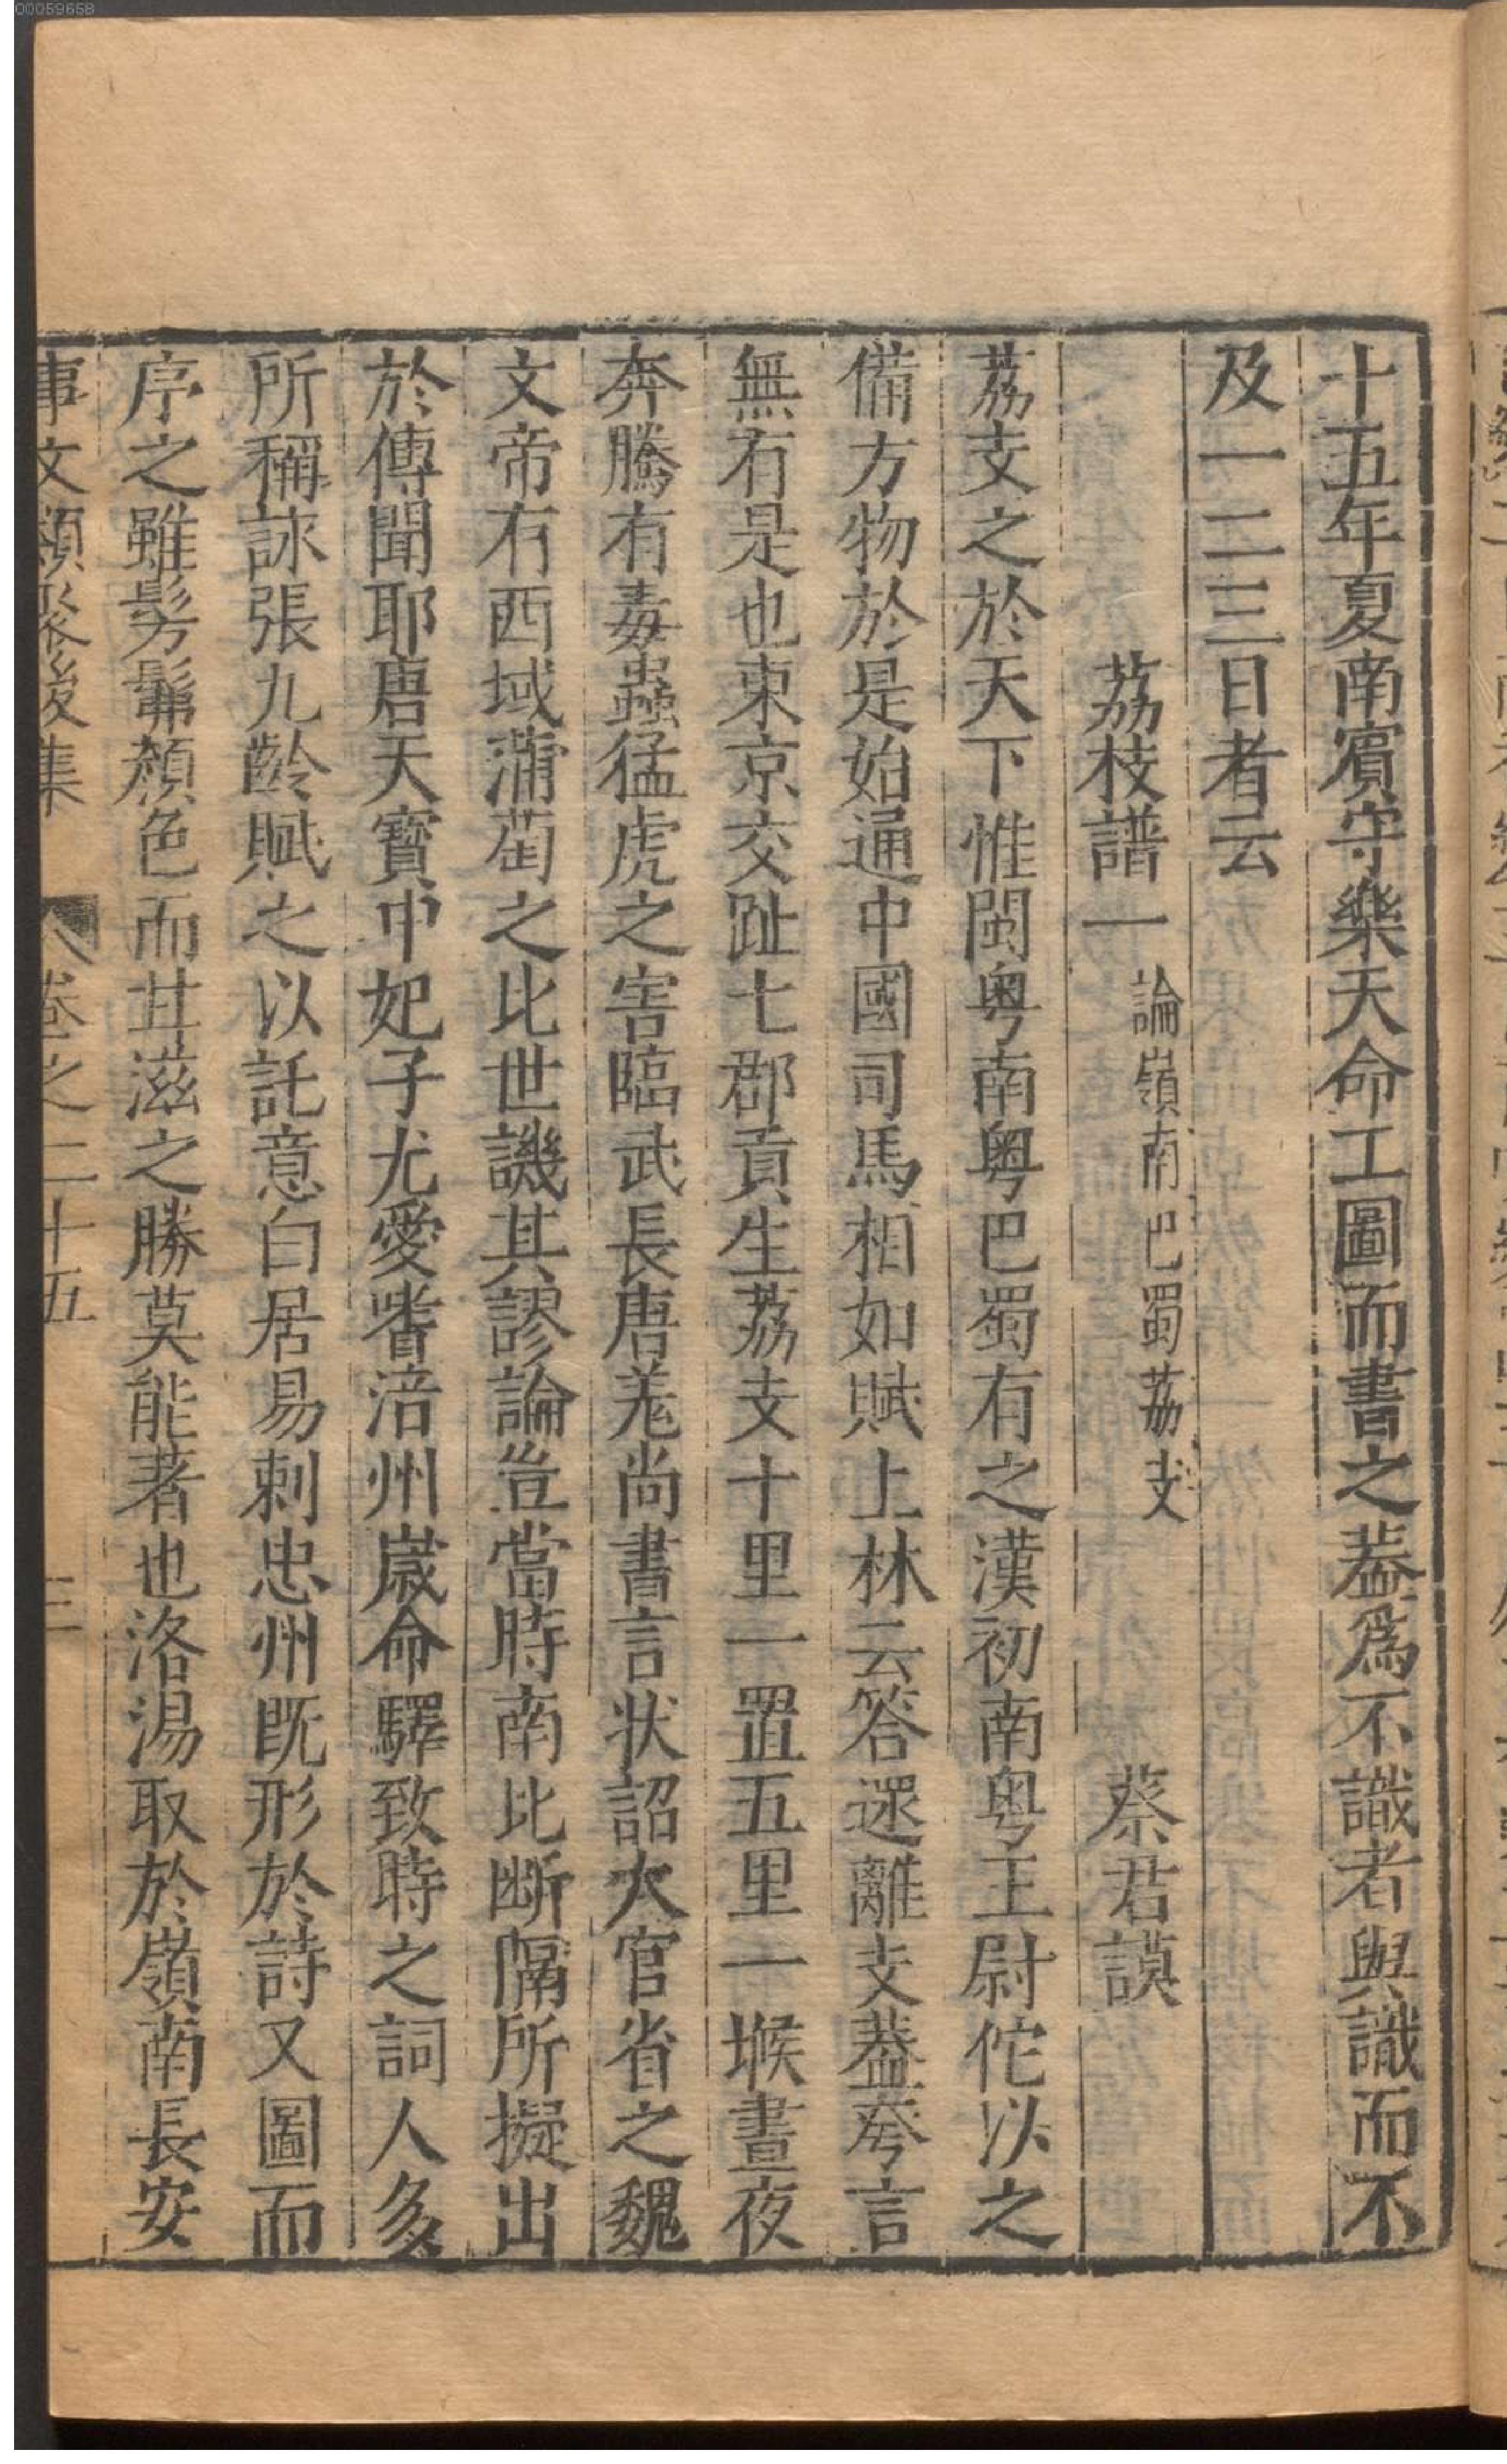 00059658
十五年夏南賔守樂天命工圖而書之葢爲不識者與識而不
及一二三日者云
荔枝譜一 論嶺南巴蜀荔支 蔡君謨
荔支之於天下惟閩粤南粤巴蜀有之漢初南粤王尉佗以之
備方物於是始通中國司馬相如賦上林云答遝離支葢夸言
無有是也東京交趾七郡貢生荔支十里一置五里一堠晝夜
奔騰有毒蟲猛虎之害臨武長唐羗尚書言状詔太官省之魏
文帝有西域蒲萄之比世譏其謬論豈當時南北断隔所擬出
於傳聞耶唐天寳中妃子尤愛嗜涪州歲命驛致時之詞人多
所稱詠張九齡賦之以託意白居易刺忠州既形於詩又圖而
序之雖髣髴顔色而甘滋之勝莫能著也洛湯取於嶺南長安
事文類聚後集 卷之二十五 三